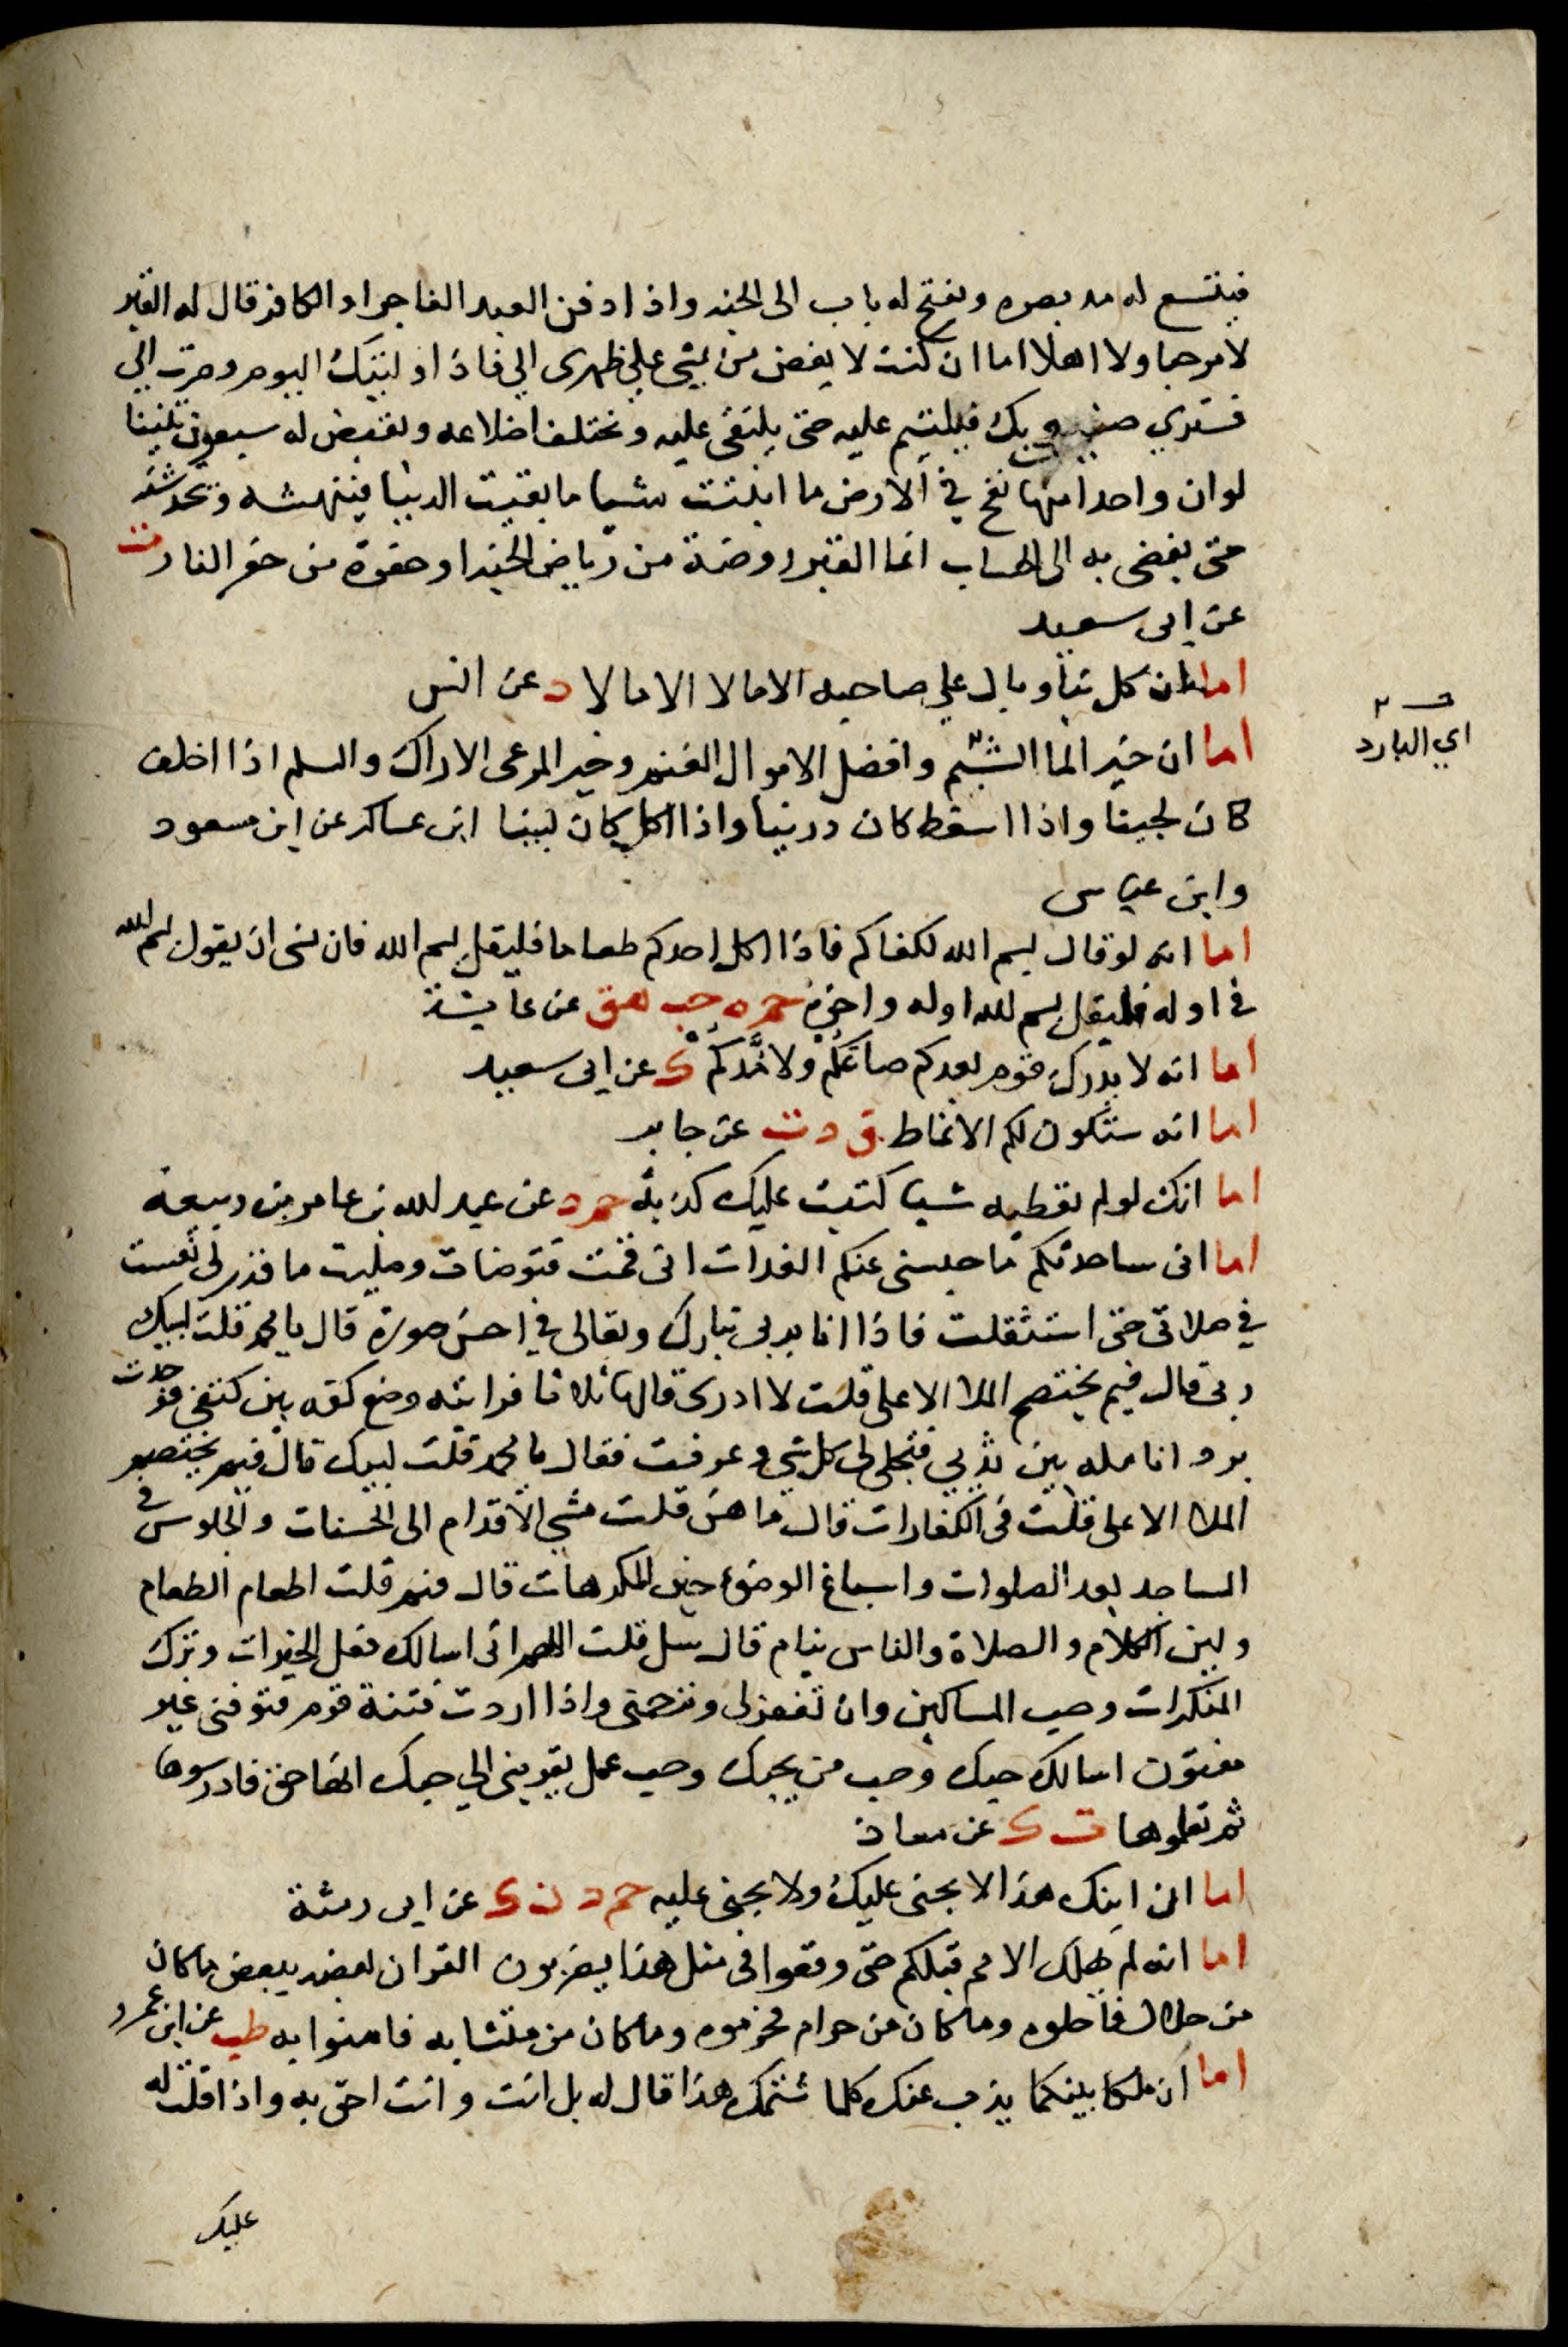 فيتسع له مد بصره ويفتح له باب الى الجنه واذا دفن العبد الفاجر او الكافر قال له القبر
لا مرحبا ولا اهلا اما ان كنت لا بغض من يمشي علي ظهرى الي فاذا وليتك اليوم وصرت الي
فسترى صنيعي بك فيلتئم عليه حتى يلتقى عليه وتختلف اضلاعه ويقيض له سبعون تنينا
لو ان واحدا منها نفخ في الارض ما انبتت شيا ما بقيت الدنيا فينهشه وتخدشه
حتى يفضى به الى الحساب انما القبر روضة من رياض الجنه او حفرة من حفر النار ت
عن ابى سعيد
اما ان كل بنا وبال علي صاحبه الا ما لا الا ما لا د عن انس
اما ان خير الما الشبم وافضل الاموال الغنم وخير المرعى الاراك والسلم اذا اخلف
كان لجينا واذا اسقط كان درينا واذا اكل كان لبينا ابن عساكر عن ابن مسعود
وابن عباس
اما انه لو قال بسم الله لكفاكم فاذا اكل احدكم طعاما فليقل بسم الله فان نسى ان يقول بسم الله
فى اوله فليقل بسم الله اوله واخره حم ه حب هق عن عايشة
اما انه لا يدرك قوم بعدكم صاعكم ولا مدكم ك عن ابى سعيد
اما انه ستكون لكم الانماط ق د ت عن جابر
اما انك لو لم تعطيه شيا كتبت عليك كذبة حم د عن عبد الله بن عامر بن ربيعة
اما انى ساحدثكم ما حبسنى عنكم الغداة انى قمت فتوضات وصليت ما قدر لى نعست
في صلاتى حتى استثقلت فاذا انا بربى تبارك وتعالى في احسن صورة قال يا محمد قلت لبيك
ربى قال فيم يختصم الملا الاعلى قلت لا ادرى قالها ثلاثا فرايته وضع كفه بين كتفى فوجدت
برد انامله بين ثديي فتجلى لى كل شي وعرفت فقال يا محمد قلت لبيك قال فيم يختصم
الملا الاعلى قلت فى الكفارات قال ما هن قلت مشي الاقدام الى الحسنات والجلوس في
المساجد بعد الصلوات واسباغ الوضوء حين المكرهات قال فيم قلت اطعام الطعام
ولين الكلام والصلاة والناس نيام قال سل قلت اللهم انى اسالك فعل الخيرات وترك
المنكرات وحب المساكين وان تغفر لى وترحمنى واذا اردت فتنة قوم فتوفنى غير
مفتون اسالك حبك وحب من يحبك وحب عمل يقربنى الي حبك انها حق فادرسوها
ثم تعلموها ت ك عن معاذ
اما ان ابنك هذا لا يجنى عليك ولا تجنى عليه حم د ن ك عن ابى رمثة
اما انه لم تهلك الامم قبلكم حتى وقعوا فى مثل هذا يضربون القران بعضه ببعض ما كان
من حلال فاحلوه وما كان من حرام فحرموه وما كان من متشابه فامنوا به طب عن ابن عمرو
اما ان ملكا بينكما يذب عنك كلما شتمك هذا قال له بل انت وانت احق به واذا قلت له
عليك
اي البارد